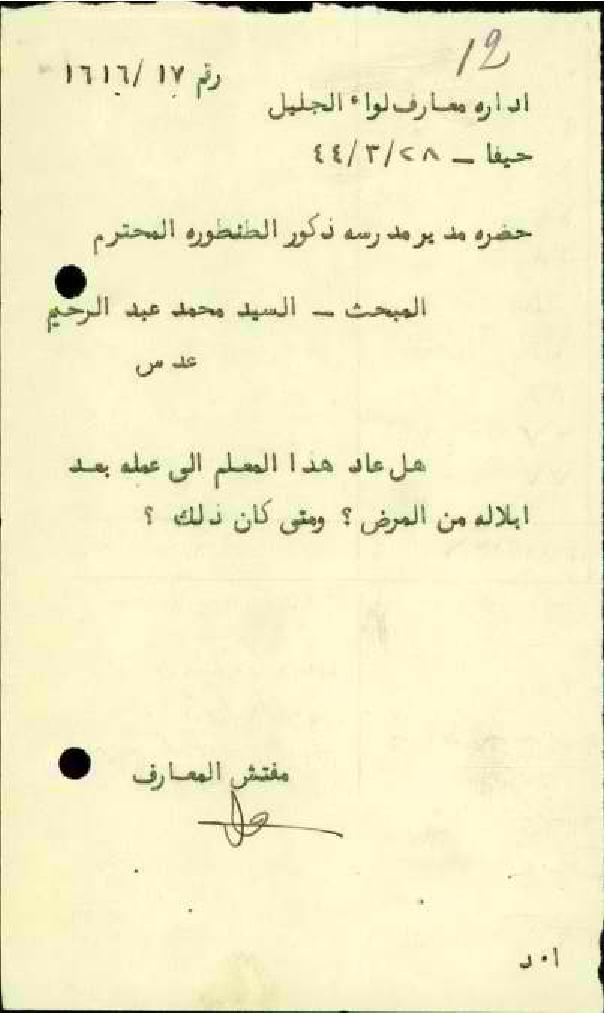 12
رقم ١٧ /١٦١٦
اداره معارف لواء الجليل
حيفا – ٤٤/٣/٢٨
حضره مدير مدرسه ذكور الطنطوره المحترم
المبحث – السيد محمد عبد الرحيم
عدس
هل عاد هذا المعلم الى عمله بعد
ابلاله من المرض ؟ ومتى كان ذلك ؟
مفتش المعارف
ا٠د